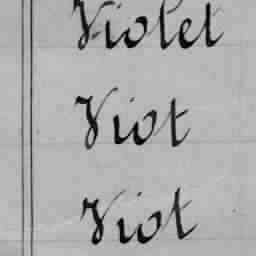 Violet
Viot
Viot